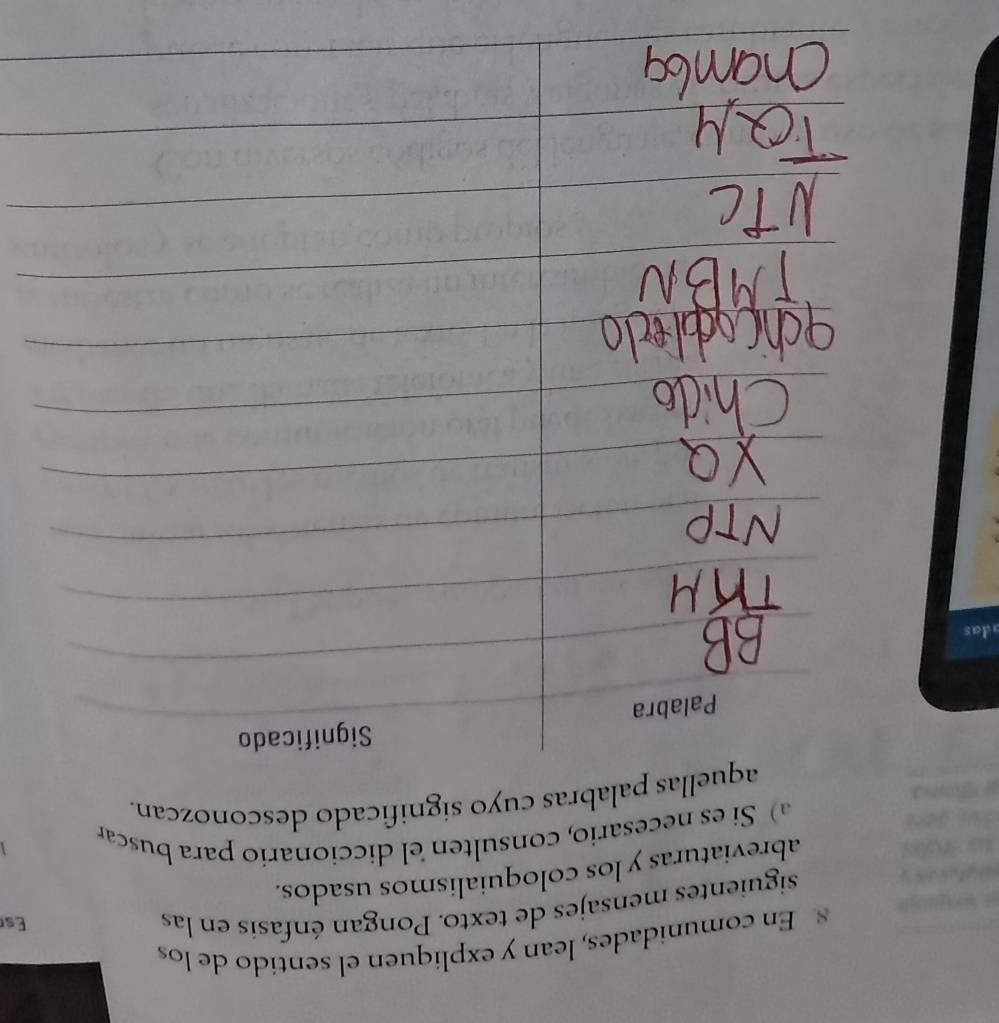 8. En comunidades, lean y expliquen el sentido de los
siguientes mensajes de texto. Pongan énfasis en las
abreviaturas y los coloquialismos usados.
a) Si es necesario, consulten el diccionario para buscar
aquellas palabras cuyo significado desconozcan.
Palabra Significado
BB
TKM
NTP
XQ
Chido
TMBN
NTC
TQM
Chamba
adas
Esc